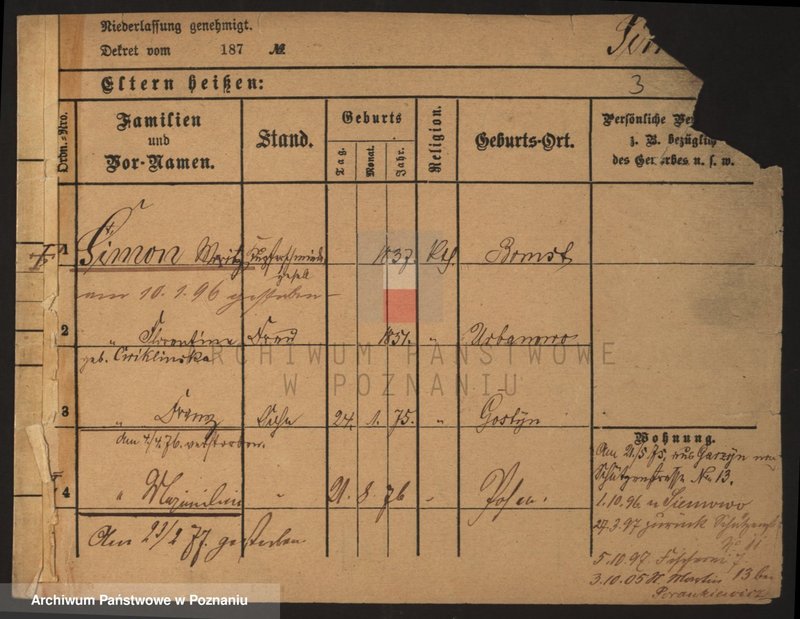 Niederlassung genehmigt.
Dekret vom 187 №
Sim
Eltern heißen:
3
Ordn.-Nro.
Familien
und
Vor-Namen.
Stand.
Geburts
Tag.
Monat.
Jahr.
Religion.
Geburts-Ort.
Persönliche
z. B. bezüglich
des Gewerbes u. s. w.
1 Simon Moritz Kupferschmiede 1837. Kth. Bomst
gesell
am 10.1.96 gestorben
2 " Florentina Frau 1851. " Urbanowo
geb. Cwiklinska
3 " Franz Sohn 24. 1. 75. " Gostyn
Am 4/4.76. verstorben.
4 " Maximilian " 21. 8. 76 " Posen.
Am 23/2 77. gestorben
Wohnung.
Am 21/5.75. aus Garzyn
Schützenstrasse No 13.
1.10.96 n Siemowo
27.3.97 zurück Schützenstr
No 11
5.10.97 Fischerei 7
3.10.05 St Martin 13 bei
Perankiewicz
ARCHIWUM PAŃSTWOWE
W POZNANIU
Archiwum Państwowe w Poznaniu